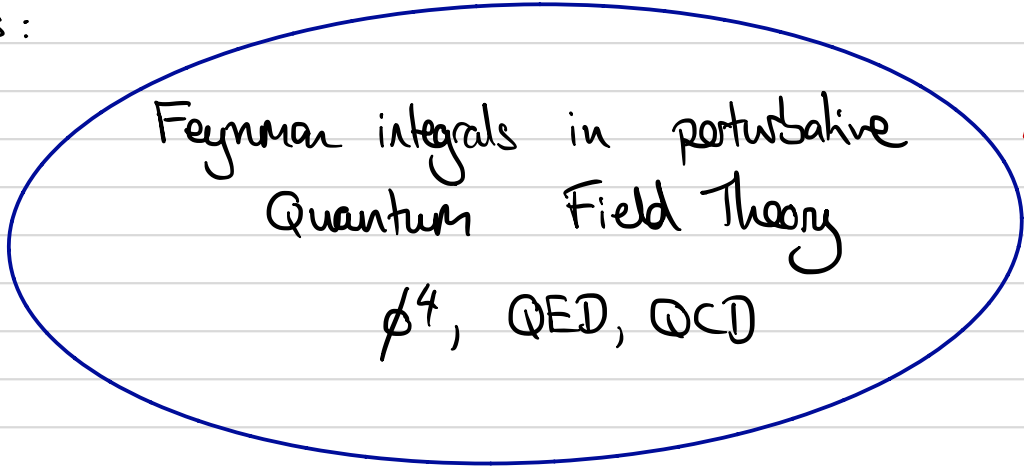 s :
Feynman integrals in perturbative
Quantum Field Theory
ϕ⁴, QED, QCD